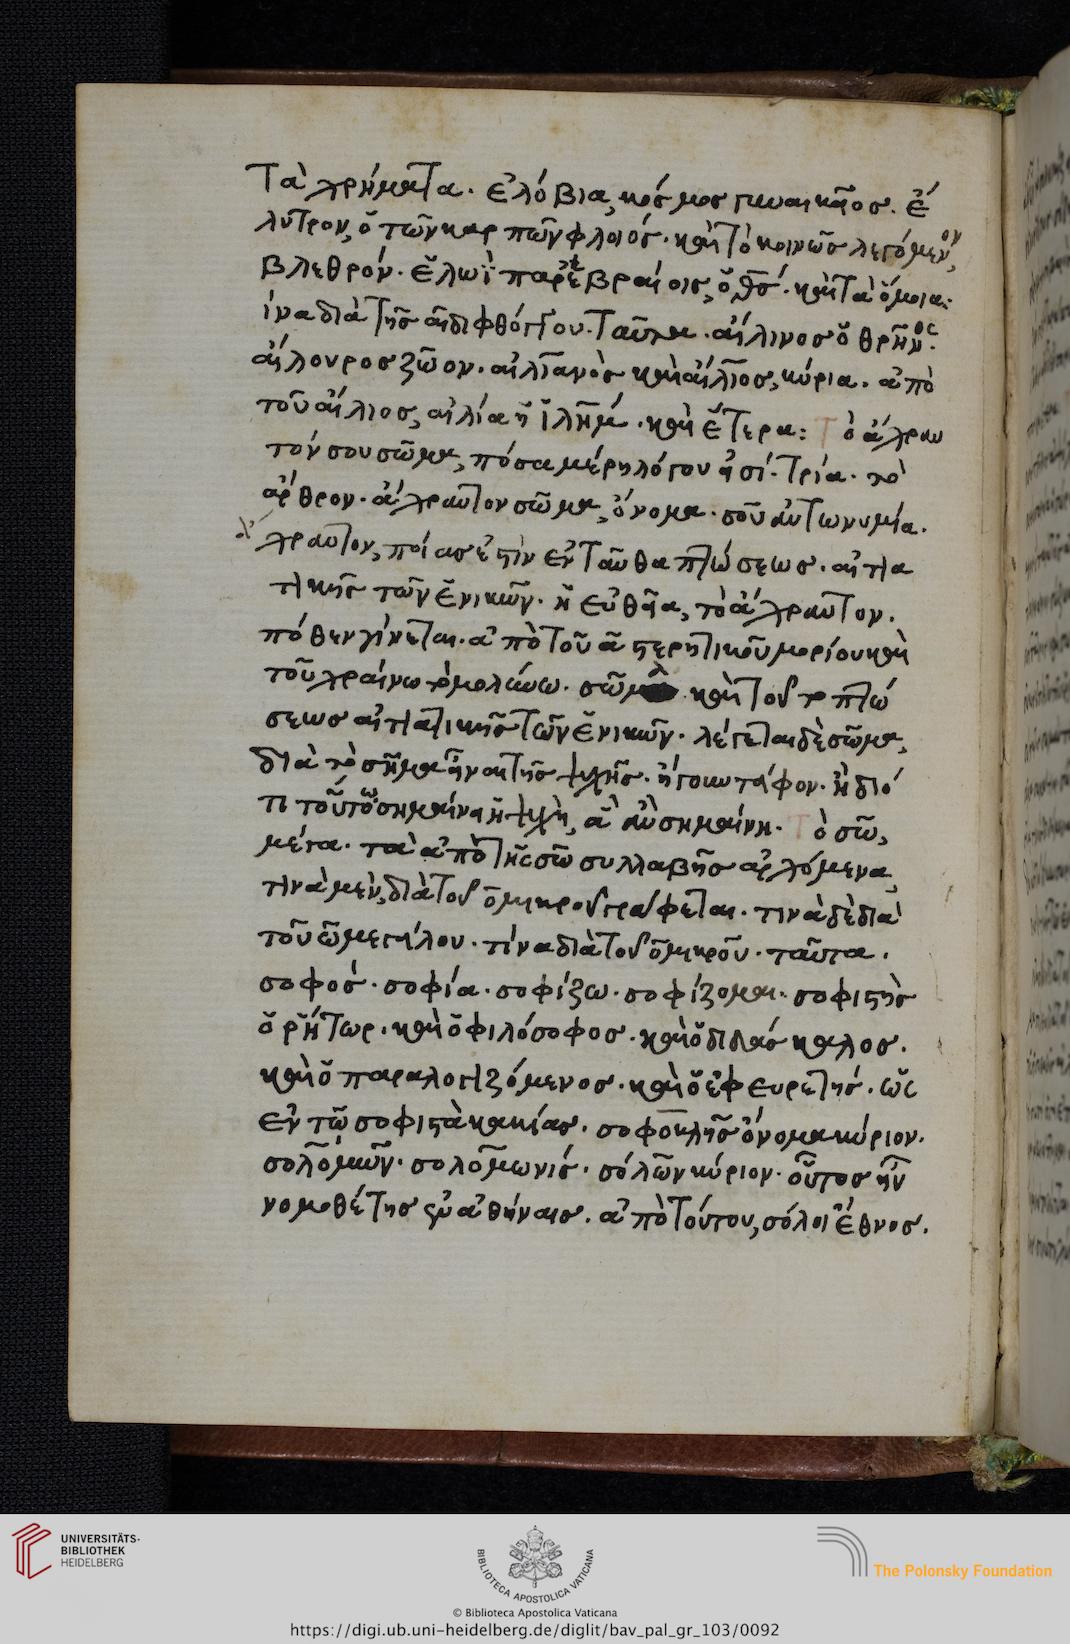 Τὰ χρήματα. ἐλόβια, κόσμος γυναικεῖος. ἔ
λυτρον, ὁ τῶν καρπῶν φλοιός. καὶ τὸ κοινῶς λεγόμενον,
βλεθρόν. ἐλωΐ παρ' ἑβραίοις, ὁ θσ. καὶ τὰ ὅμοια:
ἵνα διὰ τῆς αι διφθόγγου. Ταῦτα. αἴλινος ὁ θρῆνος.
αἴλουρος ζῶον. αἰλιανὸς καὶ αἴλιος, κύρια. ἀπὸ
τοῦ αἴλιος, αἰλία ἡ ἱλημ. καὶ ἕτερα: Τὸ ἄχραν
τόν σου σῶμα, πόσα μέρη λόγου εἰσί. τρία. τὸ
ἄρθρον. ἄχραντον σῶμα, ὄνομα. σοῦ ἀντωνυμία.
ἄχραντον, ποίας ἐστὶν ἐνταῦθα πτώσεως. αἰτια
τικῆς τῶν ἑνικῶν. ἡ εὐθεῖα, τὸ ἄχραντον.
πόθεν γίνεται. ἀπὸ τοῦ α στερητικοῦ μορίου καὶ
τοῦ χραίνω τὸ μολύνω. σῶμα καὶ τοῦτο πτώ
σεως αἰτιατικῆς τῶν ἑνικῶν. λέγεται δὲ σῶμα,
διὰ τὸ σῆμα εἶναι τῆς ψυχῆς. ἤγουν τάφον. ἢ διό
τι τούτῳ σημαίνει ἡ ψυχὴ, ἃ ἂν σημαίνη. Τὸ σῶ,
μέγα. τὰ ἀπὸ τῆς σω συλλαβῆς ἀρχόμενα,
τινὰ μὲν, διὰ τοῦ ο μικροῦ γράφεται. τινὰ δὲ διὰ
τοῦ ω μεγάλου. τίνα διὰ τοῦ ο μικροῦ. ταῦτα.
σοφός. σοφία. σοφίζω. σοφίζομαι. σοφιστὴς
ὁ ῥήτωρ. καὶ ὁ φιλόσοφος. καὶ ὁ διδάσκαλος.
καὶ ὁ παραλογιζόμενος. καὶ ὁ ἐφευρετής. ὡς
ἐν τῶ σοφιστὰ κακίας. σοφοκλῆς ὄνομα κύριον.
σολομῶν. σολομωνίς. σόλων κύριον. οὗτος ἦν
νομοθέτης ἐν ἀθήναις. ἀπὸ τούτου, σόλοι ἔθνος.
UNIVERSITÄTS-
BIBLIOTHEK
HEIDELBERG
BIBLIOTECA APOSTOLICA VATICANA
The Polonsky Foundation
© Biblioteca Apostolica Vaticana
https://digi.ub.uni-heidelberg.de/diglit/bav_pal_gr_103/0092